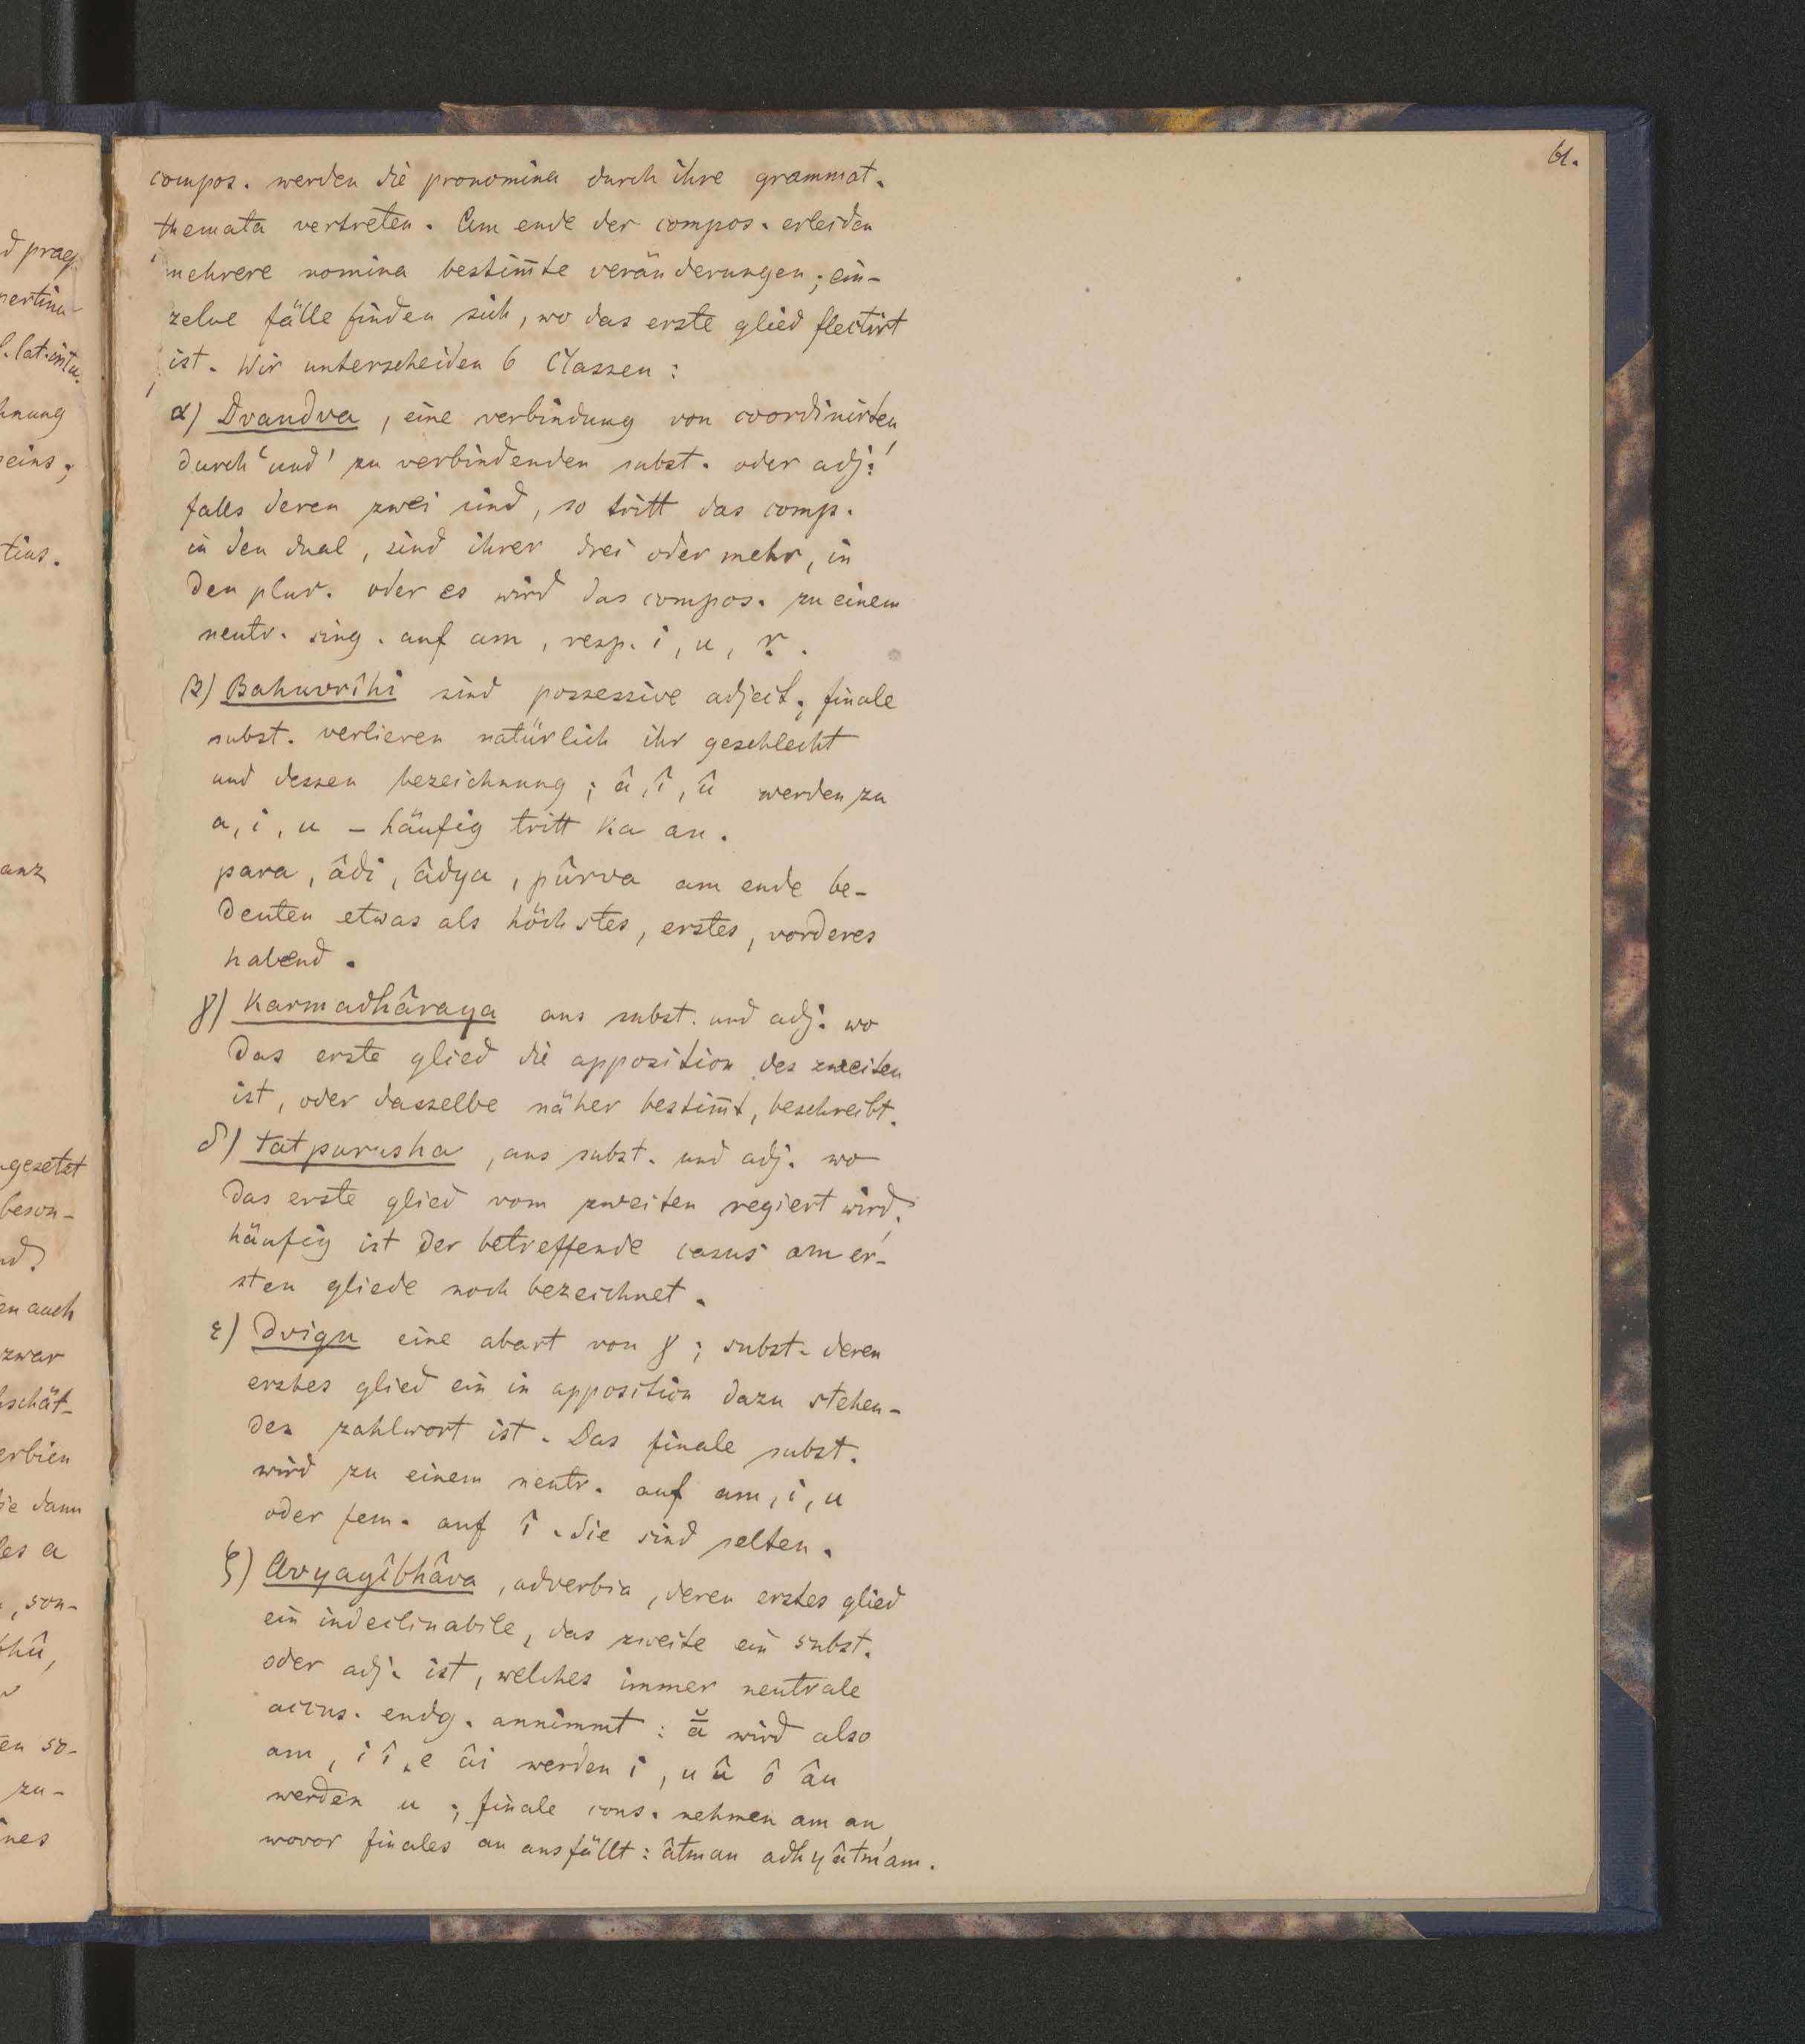 61.
compos. werden die pronomina durch ihre grammat.
themata vertreten. Am ende der compos. erleiden
mehrere nomina bestim̄te veränderungen; ein-
zelne fälle finden sich, wo das erste glied flectirt
ist. Wir unterscheiden 6 Classen:
α) Dvandva, eine verbindung von coordinirten
durch 'und' zu verbindenden subst. oder adj.;
falls deren zwei sind, so tritt das comp.
in den dual, sind ihrer drei oder mehr, in
den plur. oder es wird das compos. zu einem
neutr. sing. auf am, resp. i, u, ṛ.
β) Bahuvrîhi sind possessive adject.; finale
subst. verlieren natürlich ihr geschlecht
und dessen bezeichnung; â, î, û werden zu
a, i, u – häufig tritt ka an.
para, âdi, âdya, pûrva am ende be-
deuten etwas als höchstes, erstes, vorderes
habend.
γ) Karmadhâraya aus subst. und adj. wo
das erste glied die apposition des zweiten
ist, oder dasselbe näher bestim̄t, beschreibt.
δ) tatpurusha, aus subst. und adj. wo
das erste glied vom zweiten regiert wird;
häufig ist der betreffende casus am er-
sten gliede noch bezeichnet.
ε) Dvigu eine abart von γ; subst. deren
erstes glied ein in apposition dazu stehen-
des zahlwort ist. Das finale subst.
wird zu einem neutr. auf am, i, u
oder fem. auf î. Sie sind selten.
ζ) Avyayîbhâva, adverbia, deren erstes glied
ein indeclinabile, das zweite ein subst.
oder adj. ist, welches immer neutrale
accus. endg. annimmt: ā̆ wird also
am, i î, e âi werden i, u û ô âu
werden u; finale cons. nehmen am an
wovor finales an ausfällt: âtman adhyâtm'am.
d praep
pertinu-
l. lat. intu.
hnung
seins;
tius.
anz
ngesetzt
beson-
nd?
en auch
zwar
schät-
erbien
ie dann
les a
, son-
bhû,
en so-
zu-
ines